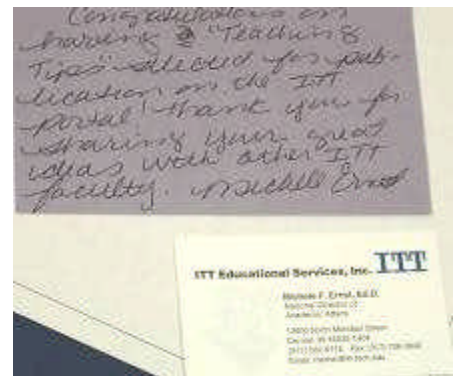 Congratulations on
having 2 "Teaching
Tips" selected for pub-
lication on the ITT
portal! Thank you for
sharing your great
ideas with other ITT
faculty. Michele Ernst
ITT Educational Services, Inc. ITT
Michele F. Ernst, Ed.D.
National Director of
Academic Affairs
Carmel, IN